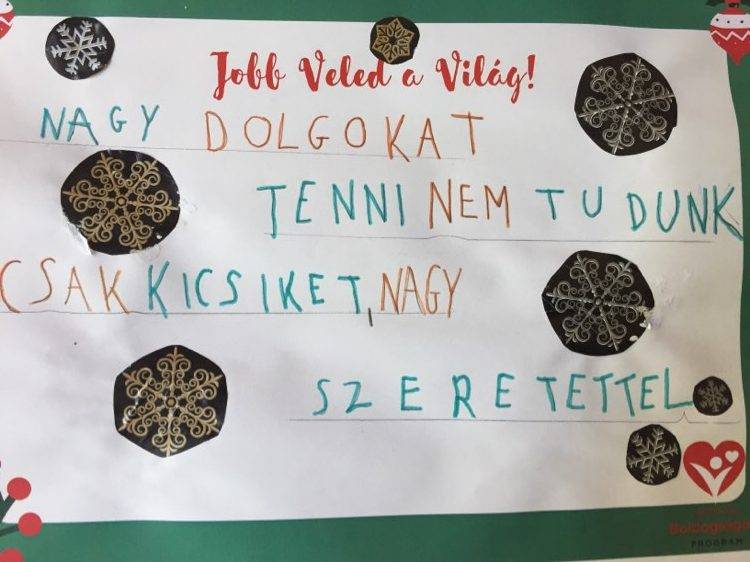 Jobb Veled a Világ!
NAGY DOLGOKAT
TENNI NEM TUDUNK
CSAK KICSIKET, NAGY
SZERETETTEL
PROGRAM